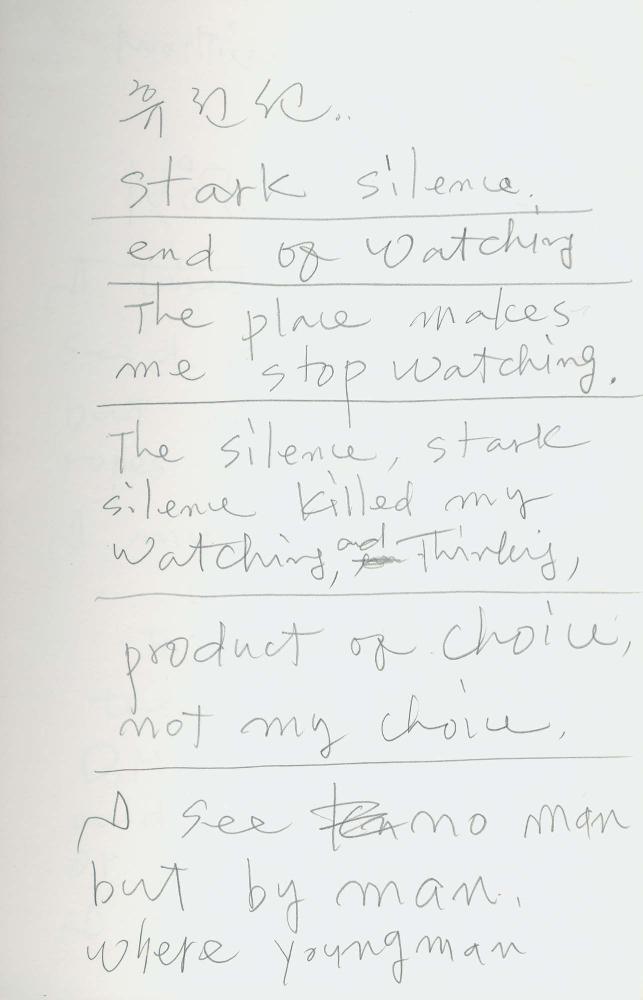 휴전선..
stark silence.
end of watching
The place makes
me stop watching.
The silence, stark
silence killed my
watching, and Thinking,
product of choice,
not my choice.
I see no man
but by man.
where youngman